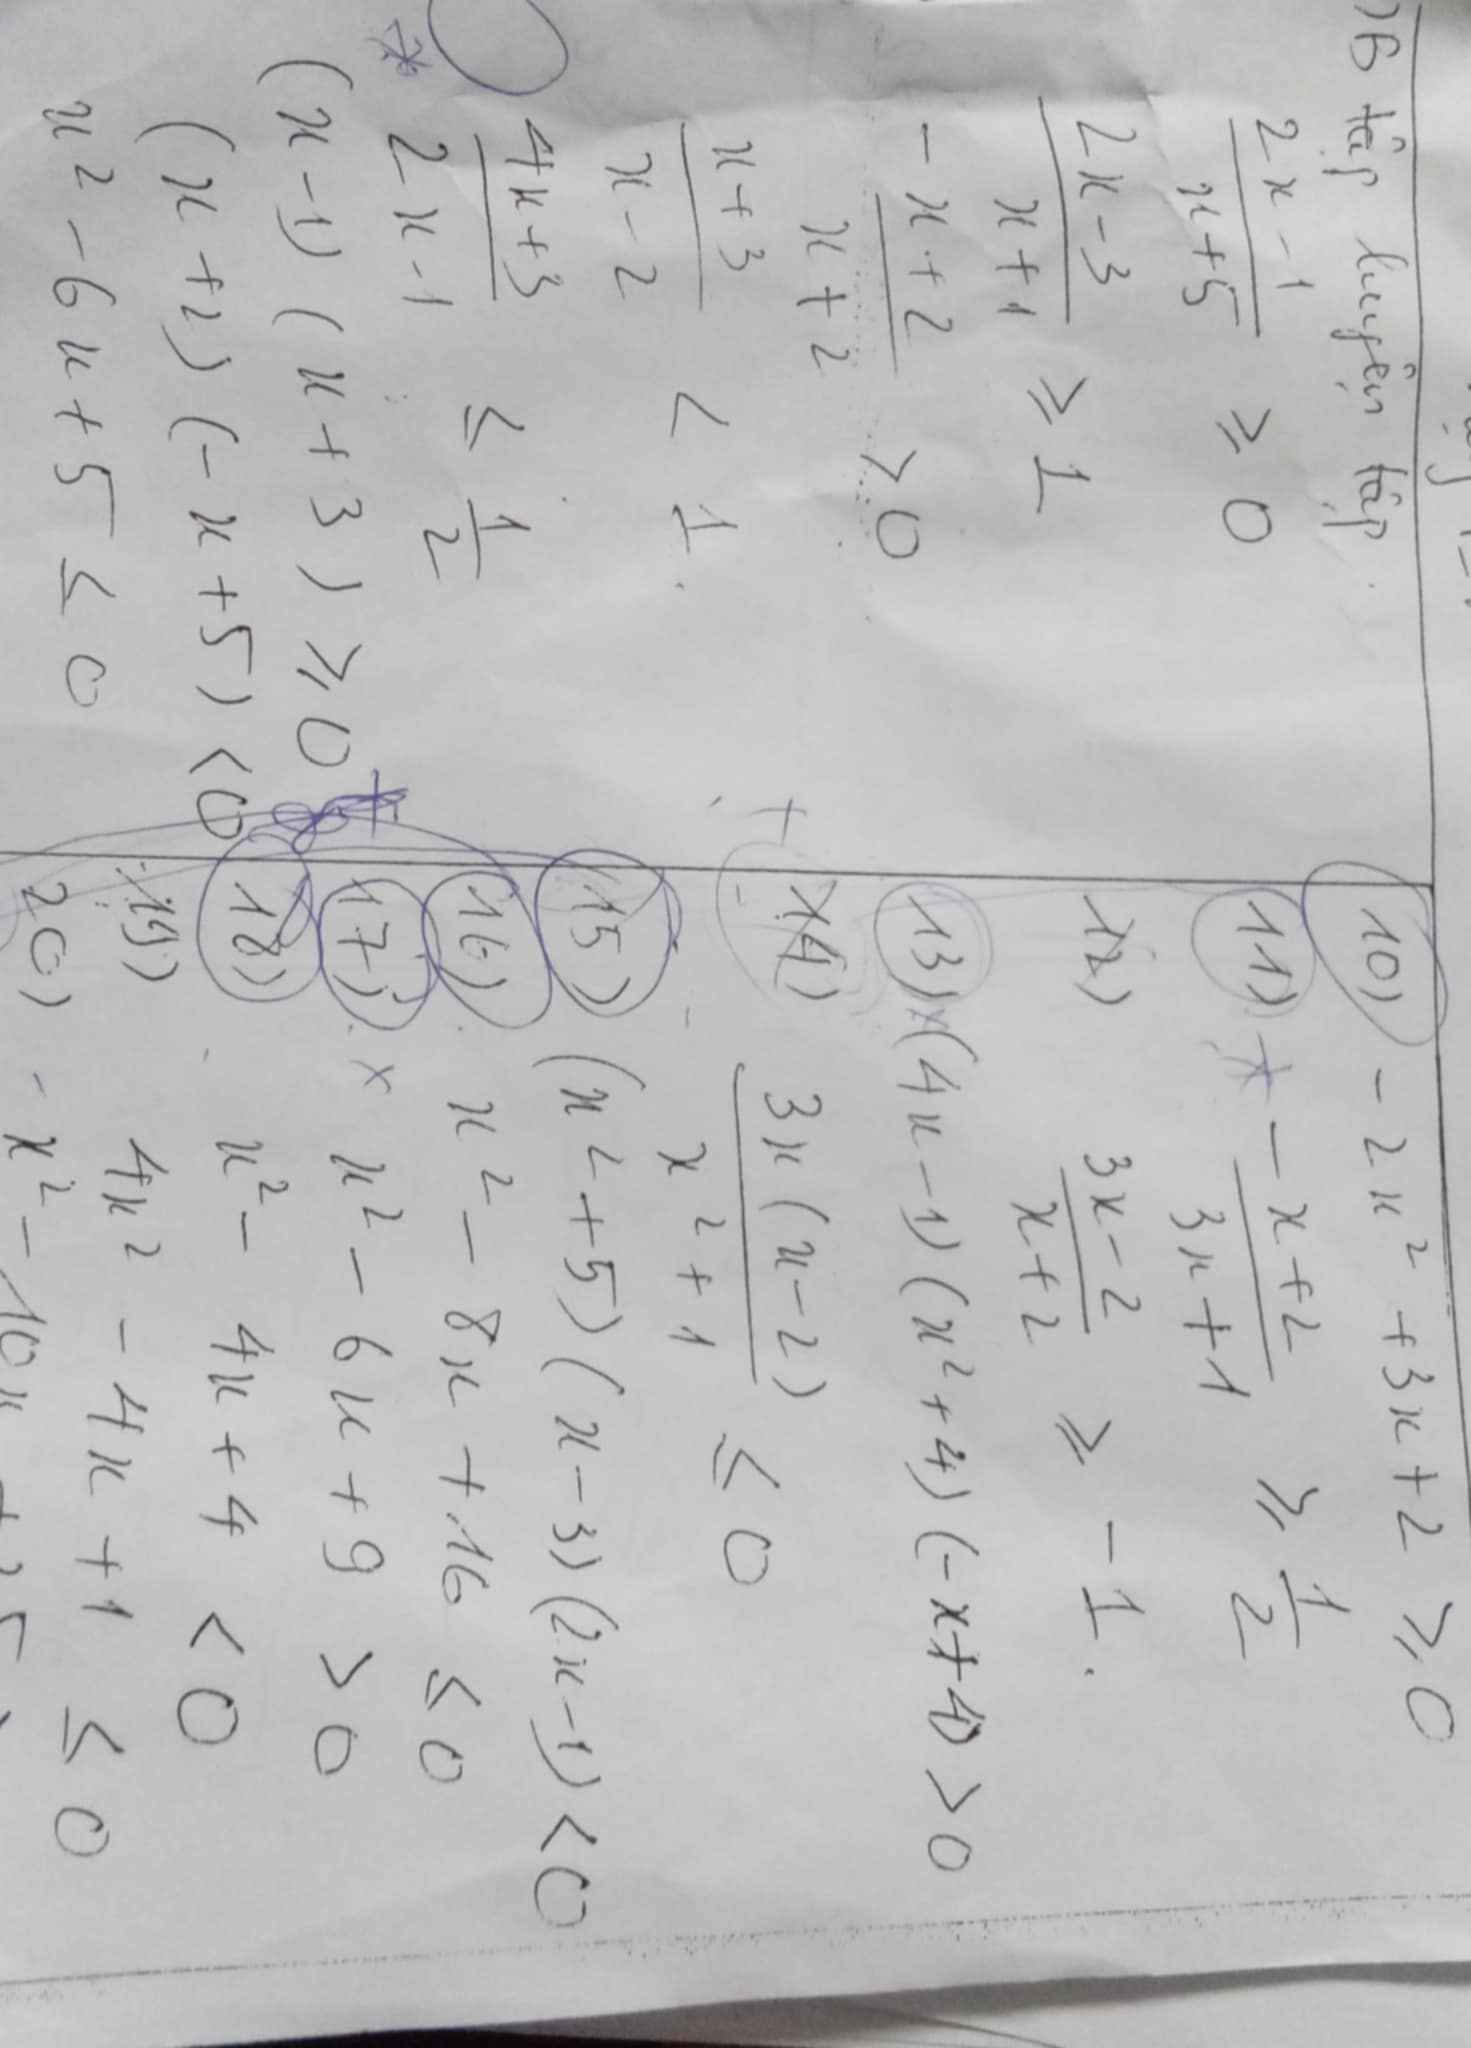 tập luyện tập.
2x-1/x+5 ≥ 0
2x-3/x+1 ≥ 1
-x+2/x+2 > 0
x+3/x-2 < 1
4x+3/2x-1 ≤ 1/2
(x-1)(x+3) ≥ 0
(x+2)(-x+5) < 0
x² - 6x + 5 ≤ 0
10) -2x² + 3x + 2 ≥ 0
11) -x+2/3x+1 ≥ 1/2
12) 3x-2/x+2 ≥ -1.
13) (4x-1)(x²+4)(-x+4) > 0
14) 3x(x-2)/x²+1 ≤ 0
15) (x²+5)(x-3)(2x-1) < 0
16) x² - 8x + 16 ≤ 0
17) x² - 6x + 9 > 0
18) x² - 4x + 4 < 0
19) 4x² - 4x + 1 ≤ 0
20) -x² - 10x